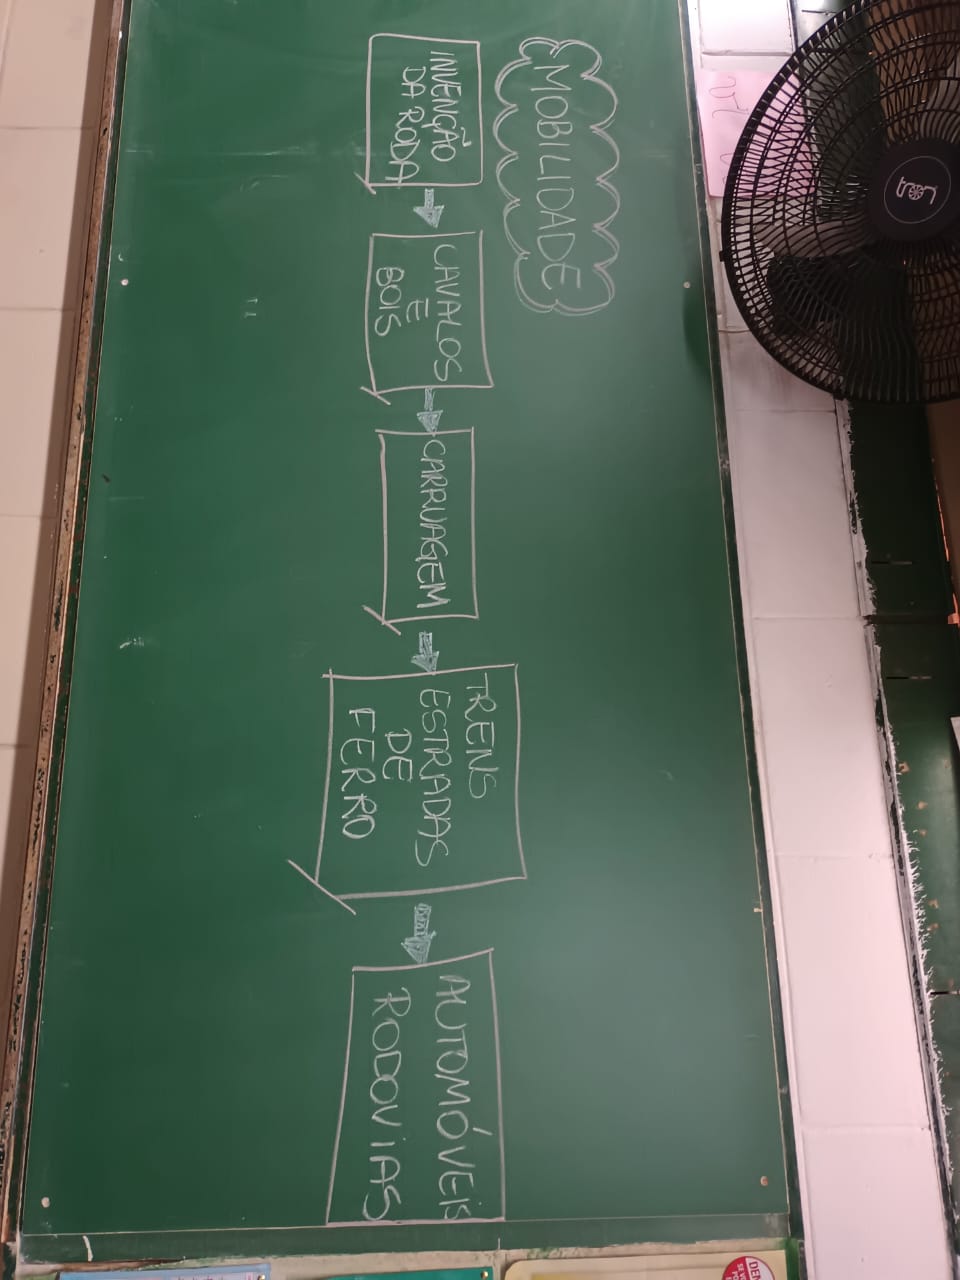 MOBILIDADE
INVENÇÃO
DA RODA
CAVALOS
E
BOIS
CARRUAGEM
TRENS
ESTRADAS
DE
FERRO
AUTOMÓVEIS
RODOVIAS